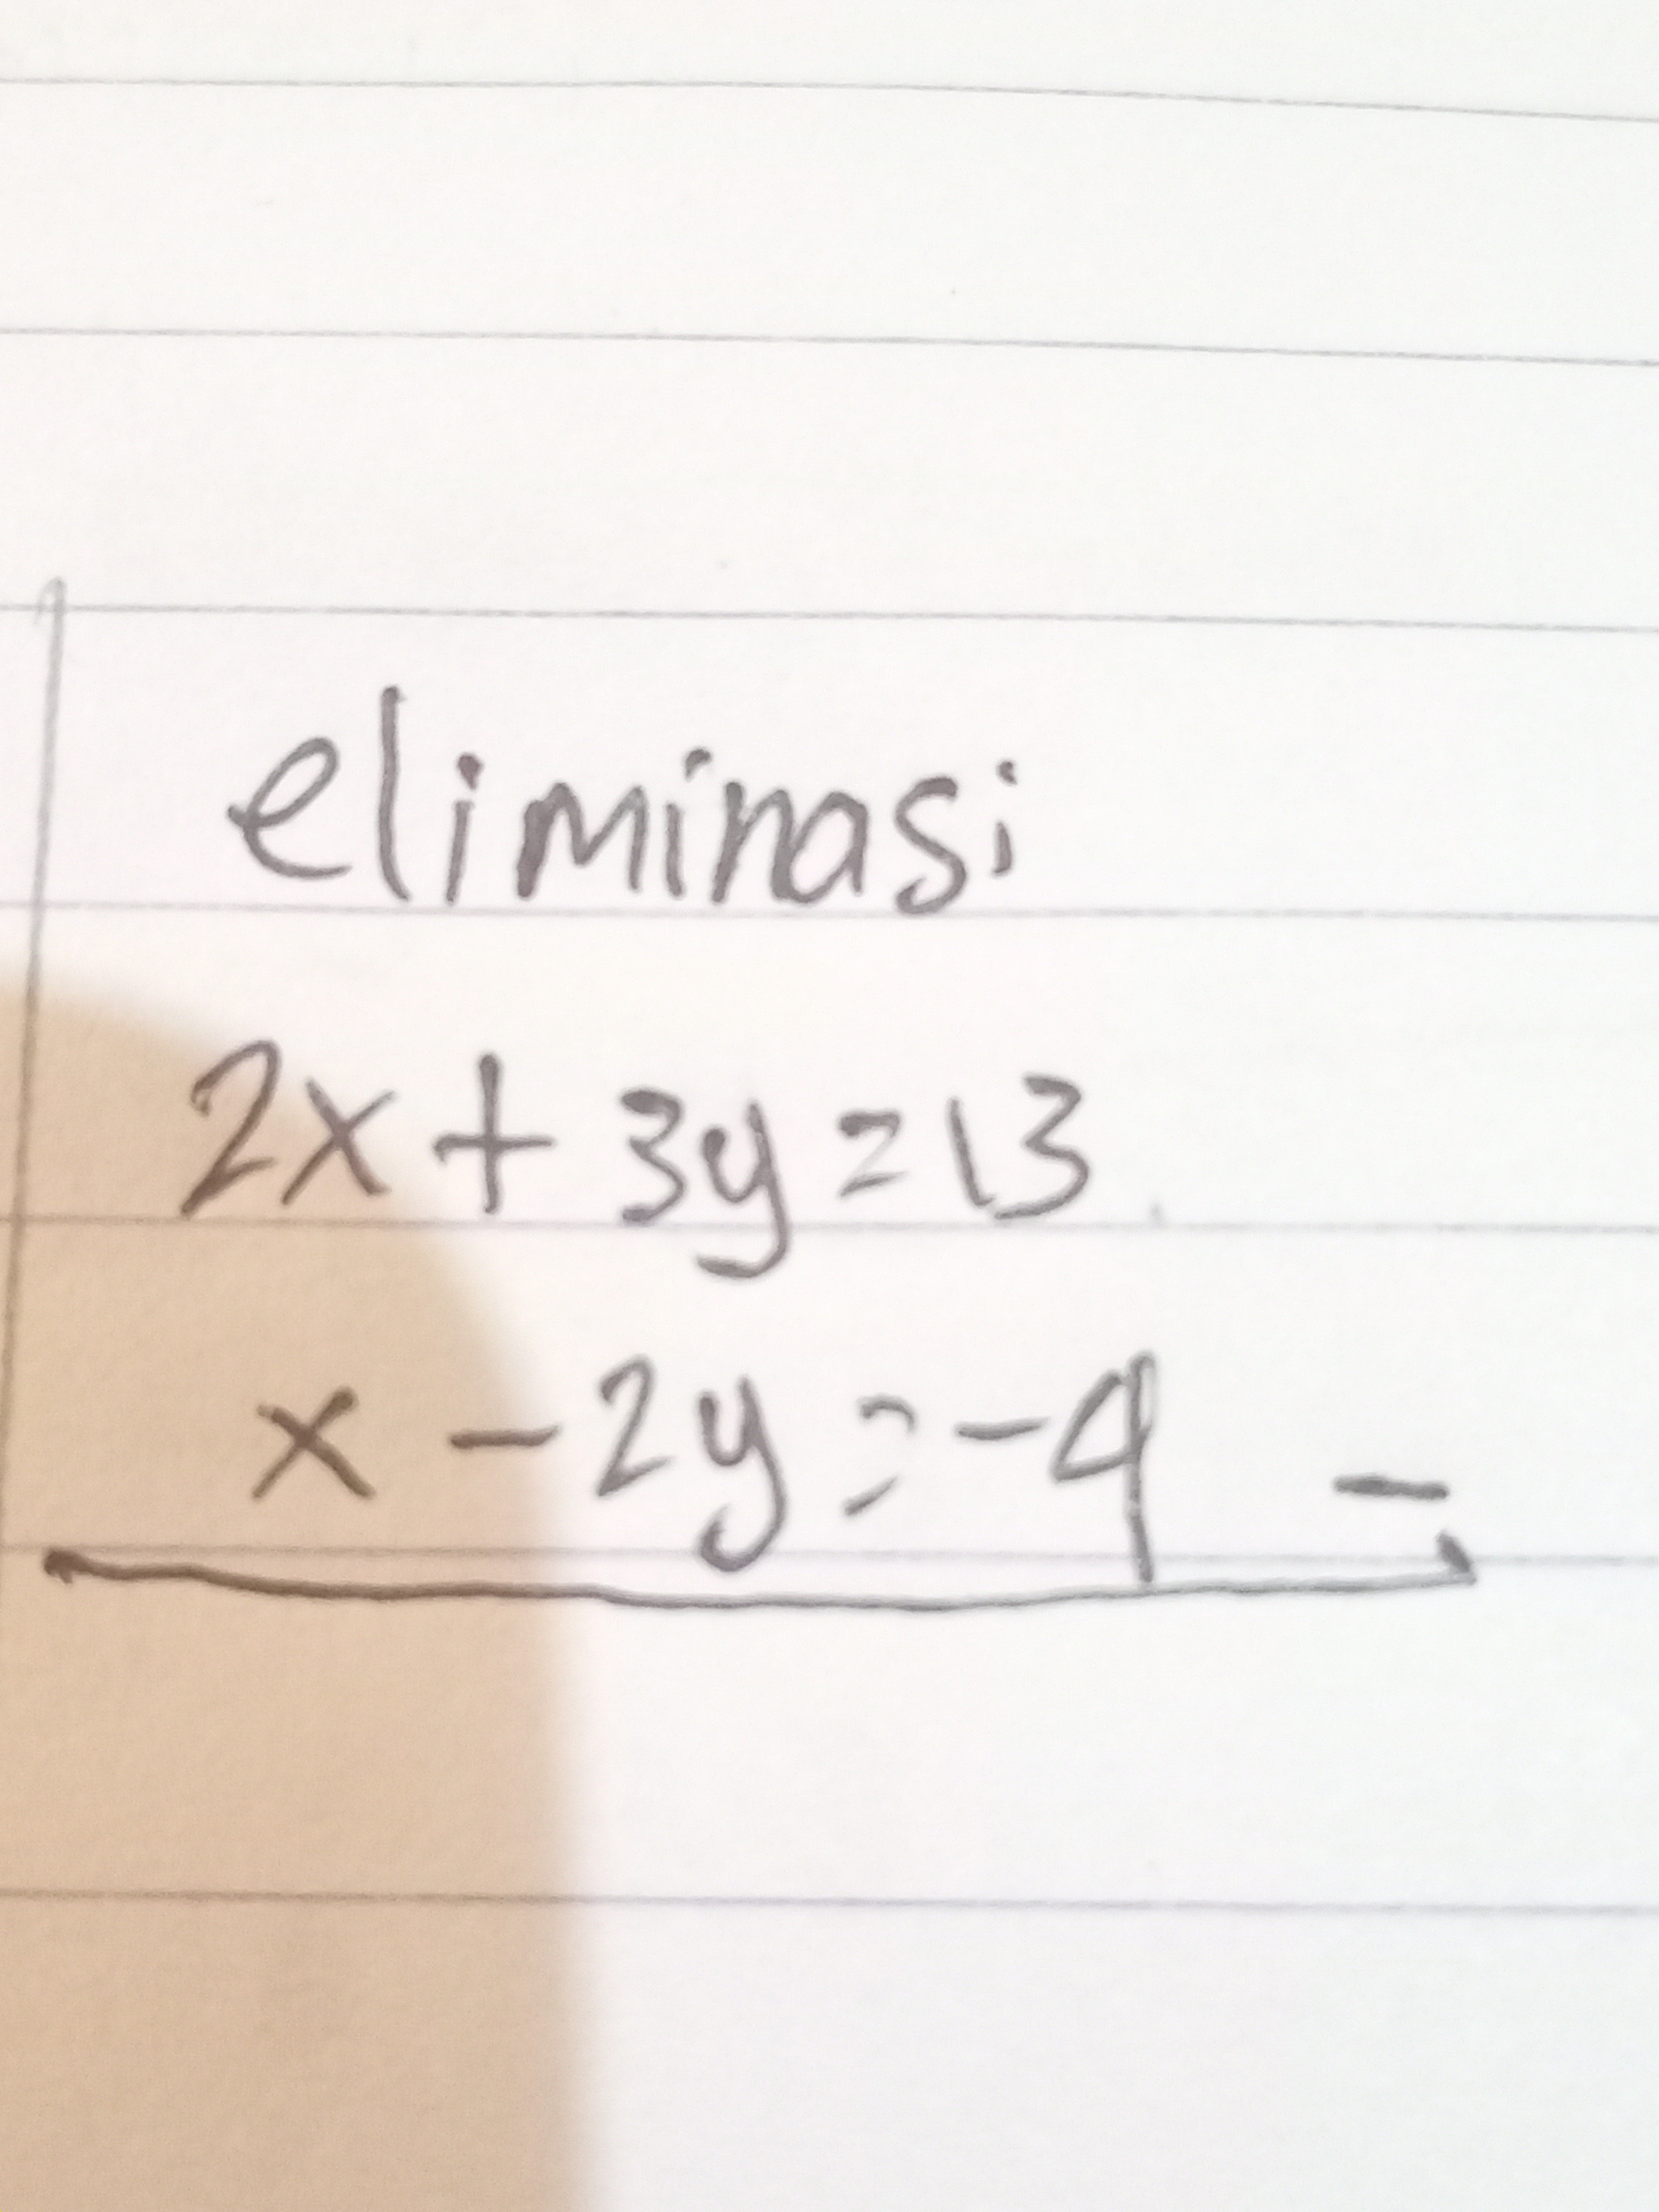 eliminasi
2x + 3y = 13
x - 2y = -4 -